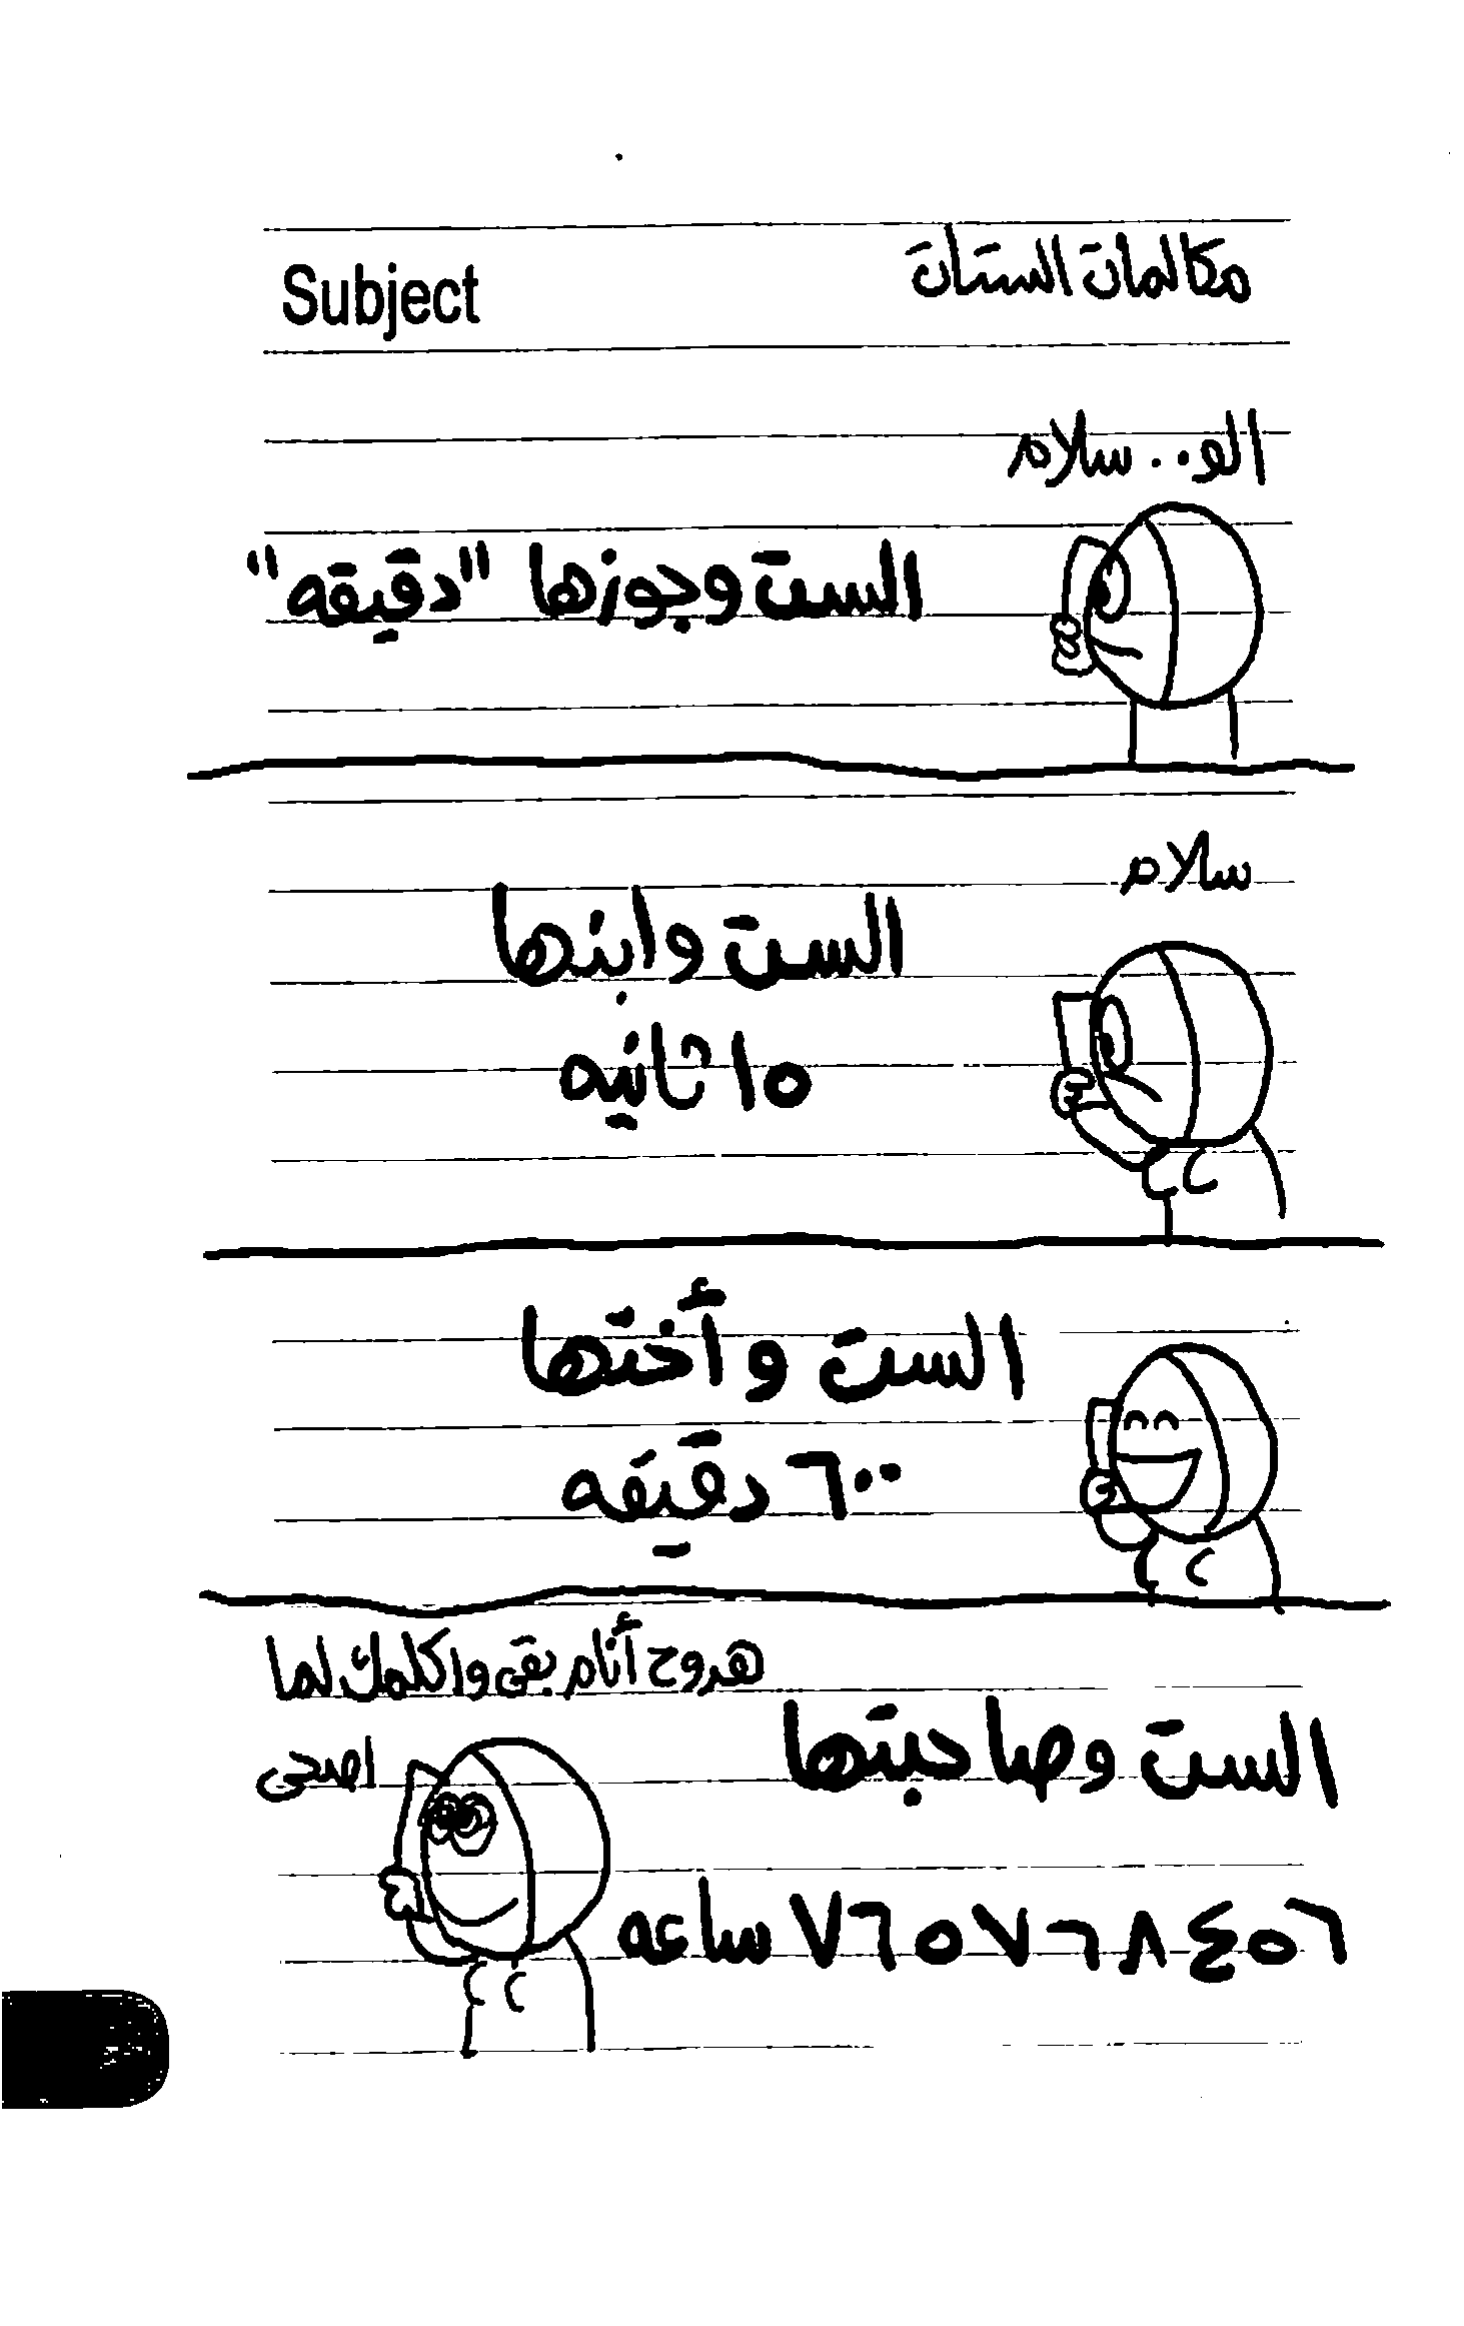 Subject مكالمات الستات
الو..سلام
الست وجوزها "دقيقه"
سلام
الست وابنها
١٥ ثانيه
الست وأختها
٦٠٠ دقيقه
هروح أنام بقى واكلمك لما
اصحى
الست وصاحبتها
٧٦٥٧٦٨٤٥٦ ساعه